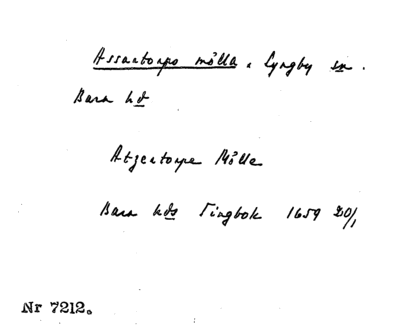 Assartorps mölla, Lyngby sn.
Bara hd
Atzertorpe Mölle
Bara hds Tingbok 1659 20/1
Nr 7212.